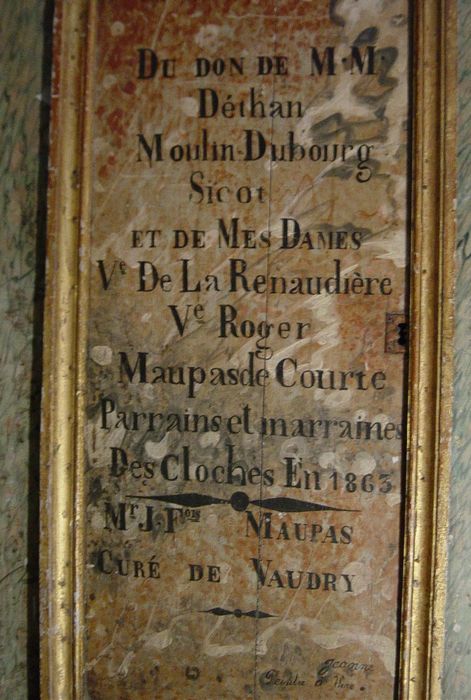 DU DON DE M.M.
Déthan
Moulin-Dubourg
Sicot
ET DE MES DAMES
Ve De La Renaudière
Ve Roger
Maupas de Courte
Parrains et marraines
Des Cloches En 1863
Mr J. Fois MAUPAS
CURÉ DE VAUDRY
Peintre à Vire